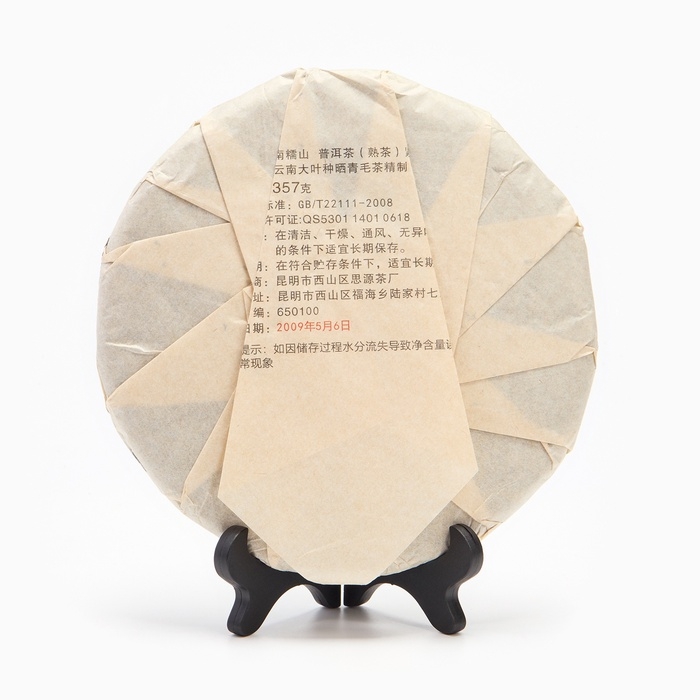 南糯山 普洱茶（熟茶）
云南大叶种晒青毛茶精制
357克
标准：GB/T22111-2008
许可证:QS5301 1401 0618
：在清洁、干燥、通风、无异
的条件下适宜长期保存。
明：在符合贮存条件下，适宜长期
商：昆明市西山区思源茶厂
址：昆明市西山区福海乡陆家村七
编：650100
日期：2009年5月6日
提示：如因储存过程水分流失导致净含量
常现象